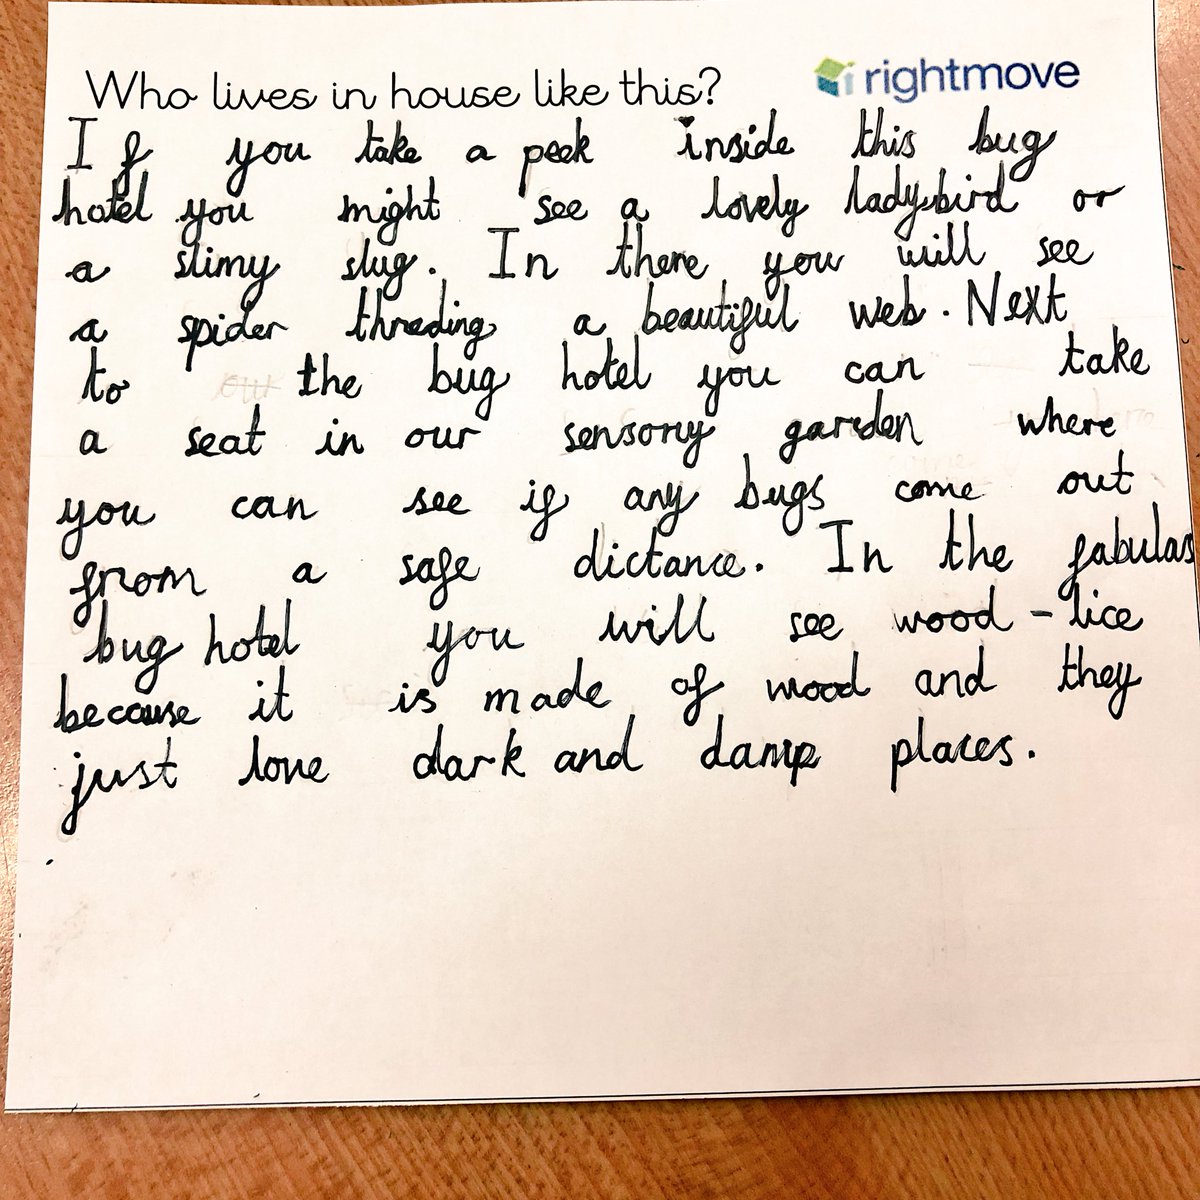 Who lives in house like this? rightmove
If you take a peek inside this bug
hotel you might see a lovely ladybird or
a slimy slug. In there you will see
a spider threding a beautiful web. Next
to the bug hotel you can take
a seat in our sensory garden where
you can see if any bugs come out
from a safe dictance. In the fabulas
bug hotel you will see wood-lice
because it is made of wood and they
just love dark and damp places.